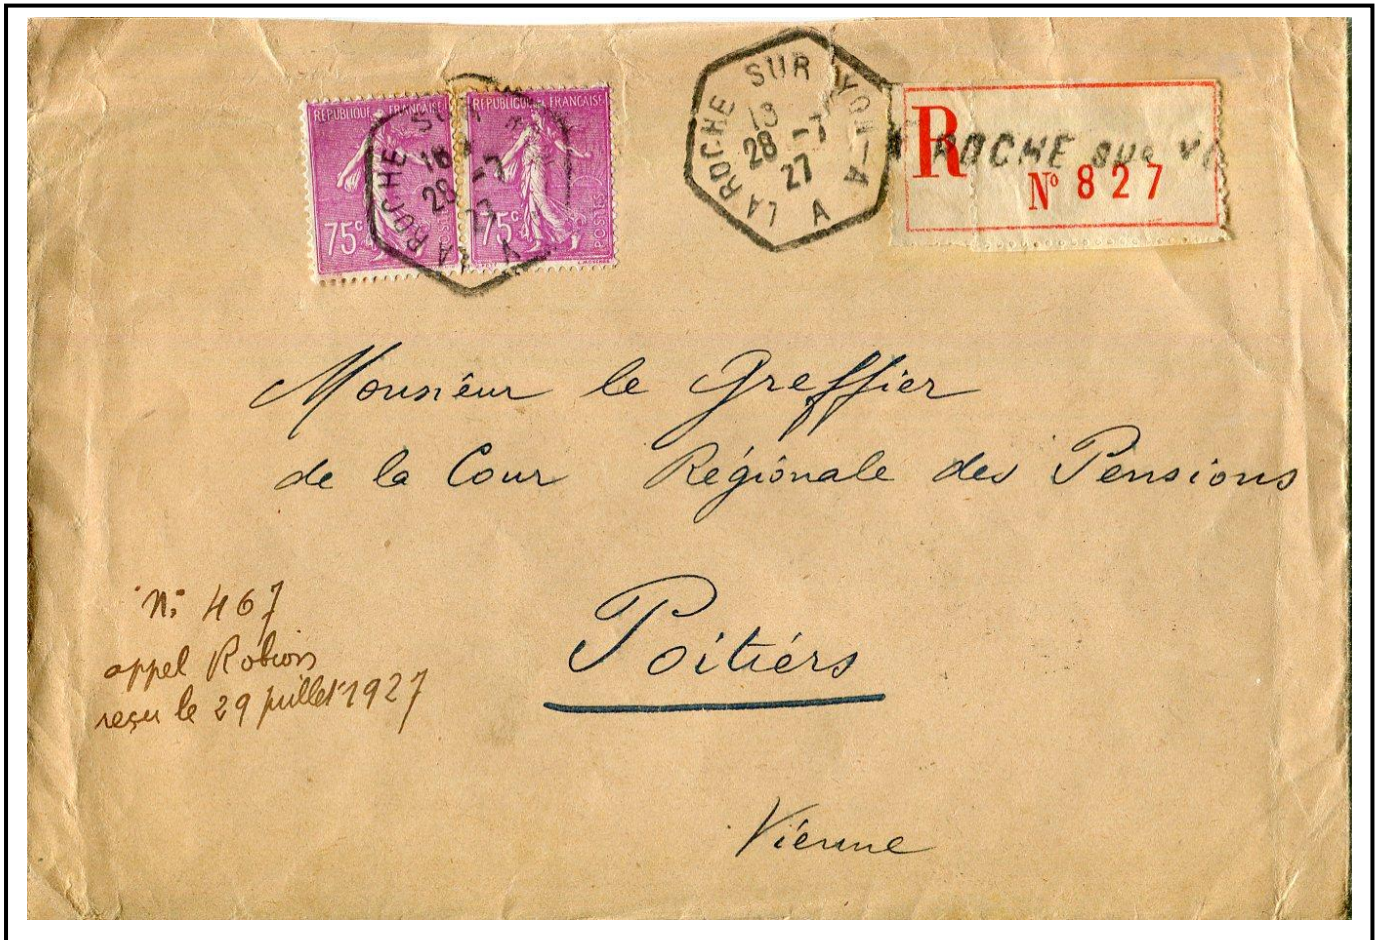 REPUBLIQUE FRANCAISE
75c
REPUBLIQUE FRANCAISE
75c
POSTES
LA ROCHE SUR
18
28 -7
27
A
LA ROCHE SUR YON-A
18
28 -7
27
A
R
ROCHE SUR YO
N° 827
Monsieur le Greffier
de la Cour Régionale des Pensions
Poitiers
Vienne
N° 467
appel Robion
reçu le 29 juillet 1927